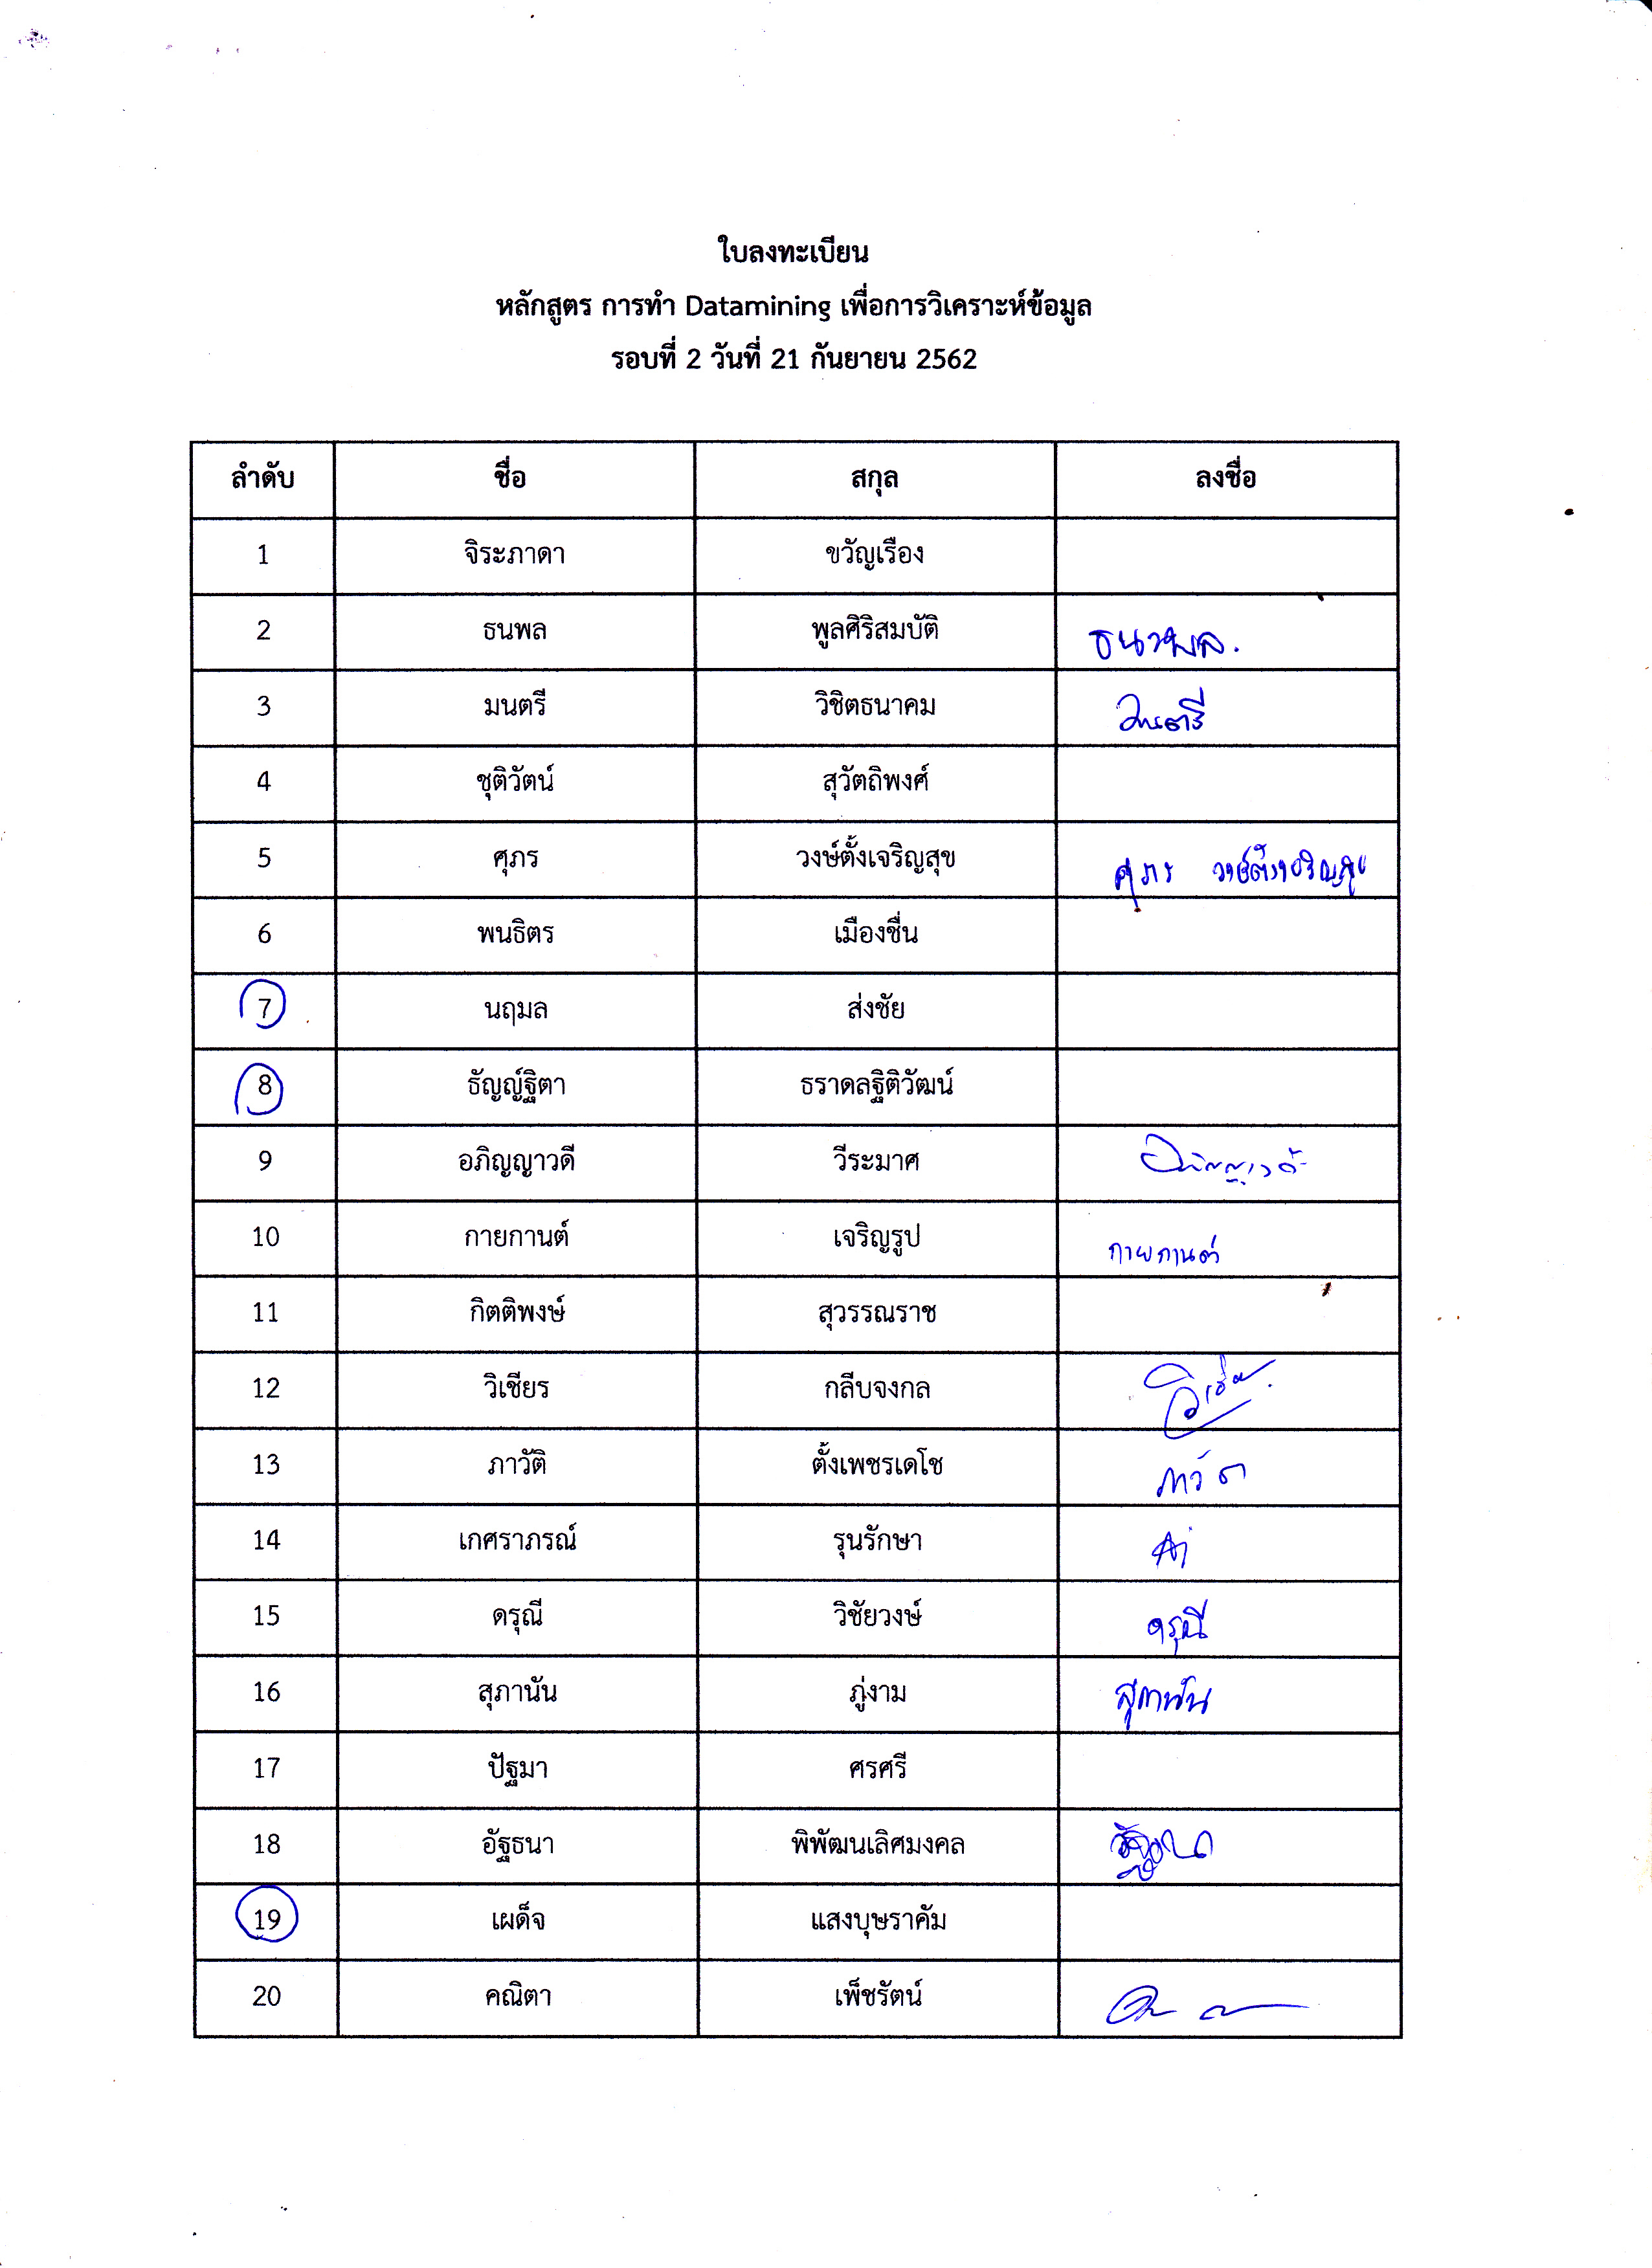 ใบลงทะเบียน
หลักสูตร การทำ Datamining เพื่อการวิเคราะห์ข้อมูล
รอบที่ 2 วันที่ 21 กันยายน 2562
ลำดับ ชื่อ สกุล ลงชื่อ
1 จิระภาดา ขวัญเรือง
2 ธนพล พูลศิริสมบัติ
3 มนตรี วิชิตธนาคม มนตรี
4 ชุติวัตน์ สุวัตถิพงศ์
5 ศุภร วงษ์ตั้งเจริญสุข ศุภร วงษ์ตั้งเจริญสุข
6 พนธิตร เมืองชื่น
7 นฤมล ส่งชัย
8 ธัญญ์ฐิตา ธราดลฐิติวัฒน์
9 อภิญญาวดี วีระมาศ อภิญญาวดี
10 กายกานต์ เจริญรูป กายกานต์
11 กิตติพงษ์ สุวรรณราช
12 วิเชียร กลีบจงกล
13 ภาวัติ ตั้งเพชรเดโช
14 เกศราภรณ์ รุนรักษา
15 ดรุณี วิชัยวงษ์ ดรุณี
16 สุภานัน ภู่งาม สุภานัน
17 ปัฐมา ศรศรี
18 อัฐธนา พิพัฒนเลิศมงคล
19 เผด็จ แสงบุษราคัม
20 คณิตา เพ็ชรัตน์